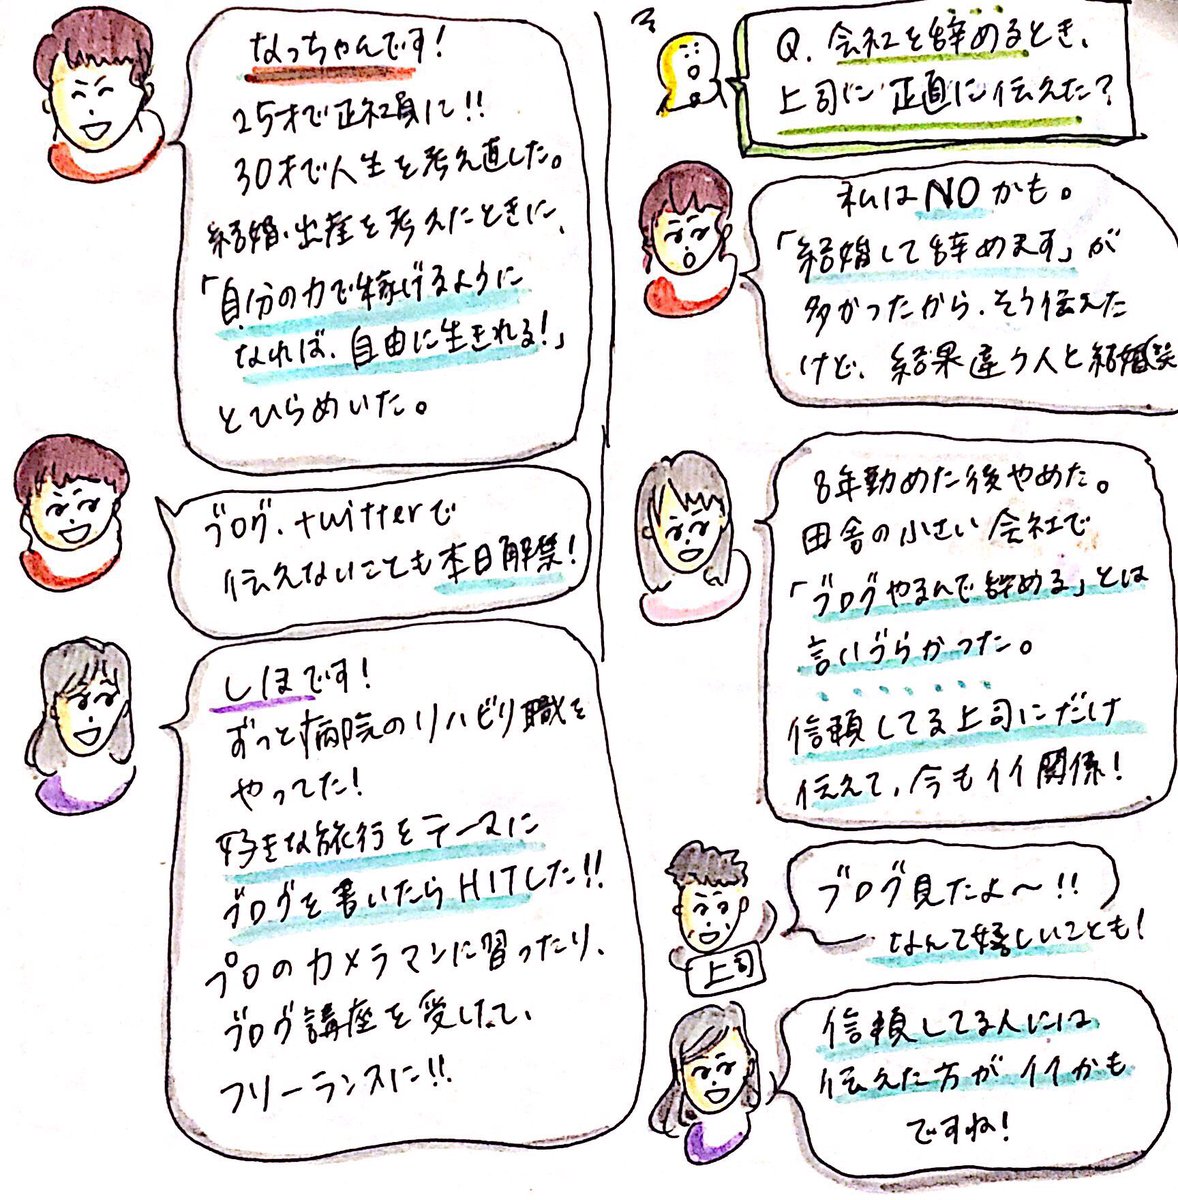 なっちゃんです!
25才で正社員に!!
30才で人生を考え直した。
結婚・出産を考えたときに、
「自分の力で稼げるように
なれば、自由に生きれる!」
とひらめいた。
ブログ、twitterで
伝えないことも本日解禁!
しほです!
ずっと病院のリハビリ職を
やってた!
好きな旅行をテーマに
ブログを書いたらHITした!!
プロのカメラマンに習ったり、
ブログ講座を受したて、
フリーランスに!!
Q. 会社を辞めるとき、
上司に正直に伝えた?
私はNOかも。
「結婚して辞めます」が
多かったから、そう伝えた
けど、結果違う人と結婚笑
8年勤めた後やめた。
田舎の小さい会社で
「ブログやるんで辞める」とは
言いづらかった。
信頼してる上司にだけ
伝えて、今もイイ関係!
ブログ見たよ〜!!
なんて嬉しいことも!
上司
信頼してる人には
伝えた方がイイかも
ですね!